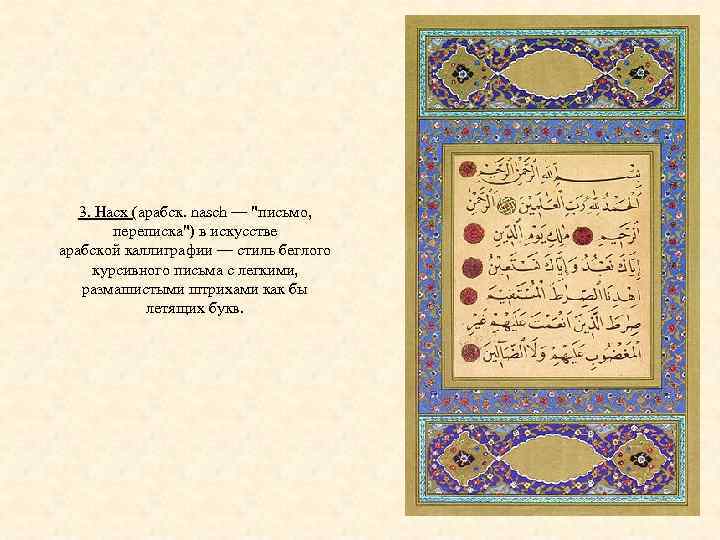 3. Насх (арабск. nasch — "письмо,
переписка") в искусстве
арабской каллиграфии — стиль беглого
курсивного письма с легкими,
размашистыми штрихами как бы
летящих букв.
بسم الله الرحمن الرحيم
الحمد لله رب العالمين الرحمن
الرحيم ملك يوم الدين
إياك نعبد وإياك نستعين
اهدنا الصراط المستقيم
صراط الذين أنعمت عليهم غير
المغضوب عليهم ولا الضالين